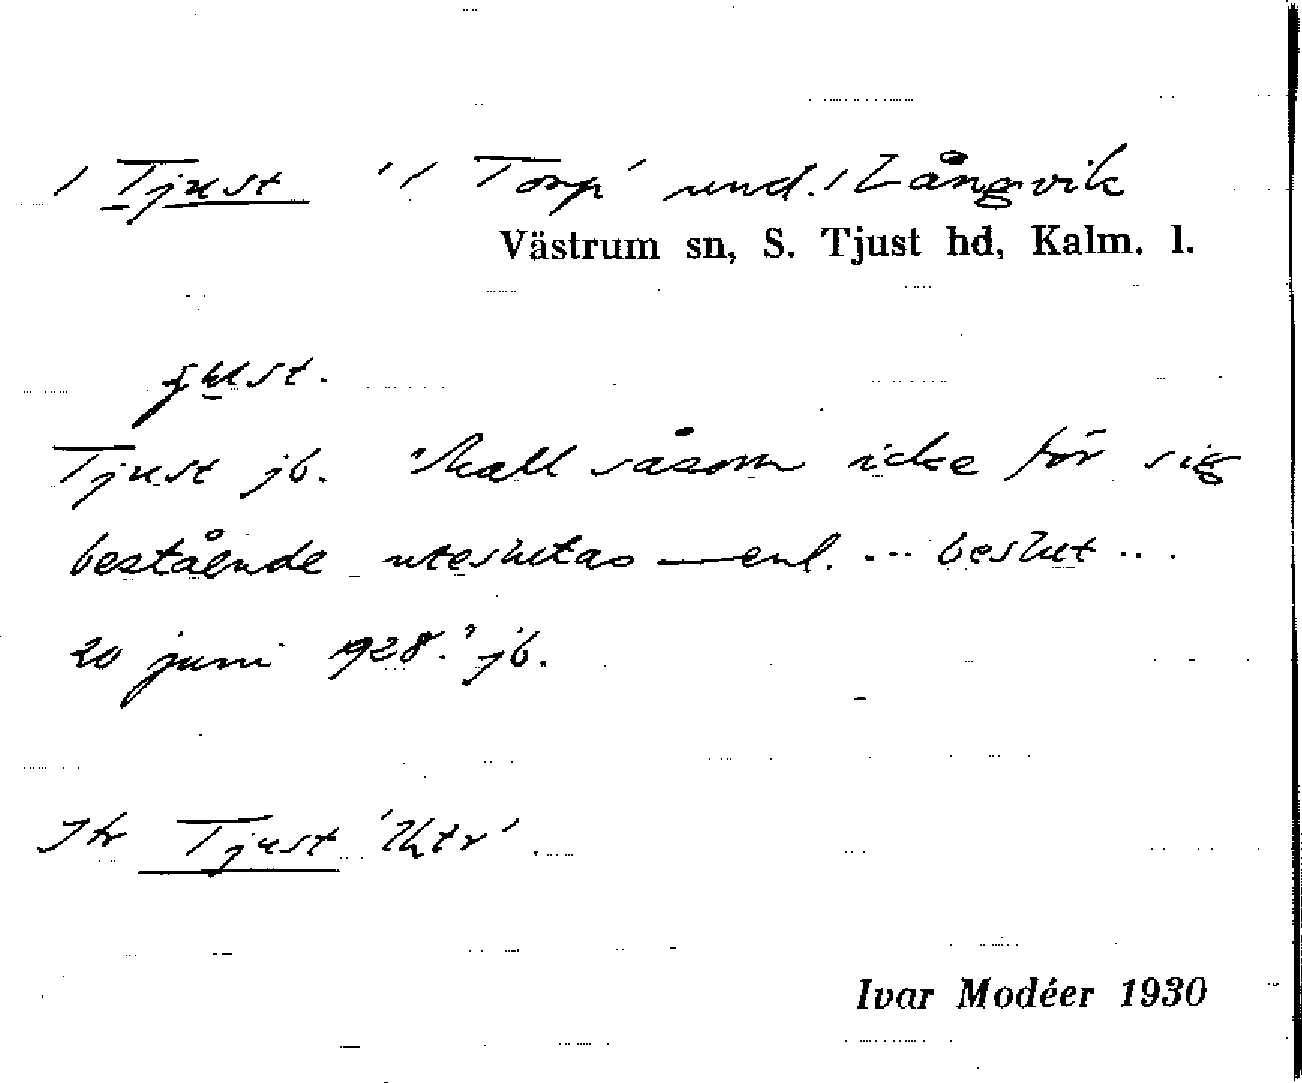 / Tjust '/ Torp' und. / Långvik
Västrum sn, S. Tjust hd, Kalm. l.
Tjust jb. "Skall såsom icke för sig
bestående uteslutas — enl. ... beslut ...
20 juni 1928." jb.
Tjust
Ivar Modéer 1930